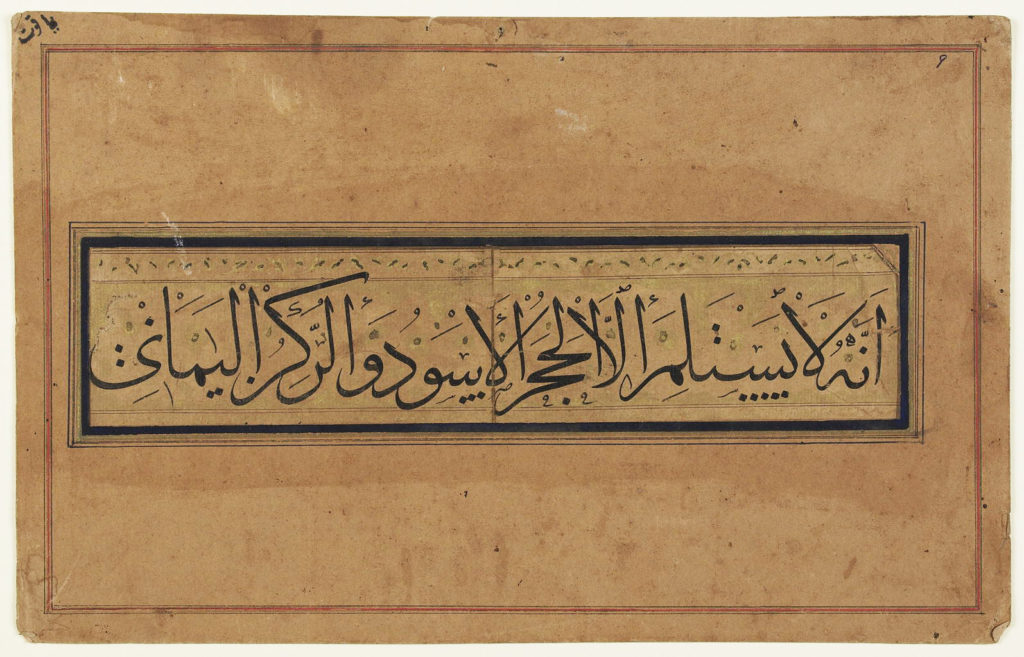 ياقوت
۹
اَنَّهُ لَا يَسْتَلِمُ اِلَّا الْحَجَرَ الْأَسْوَدَ وَالرُّكْنَ الْيَمَانِيَ